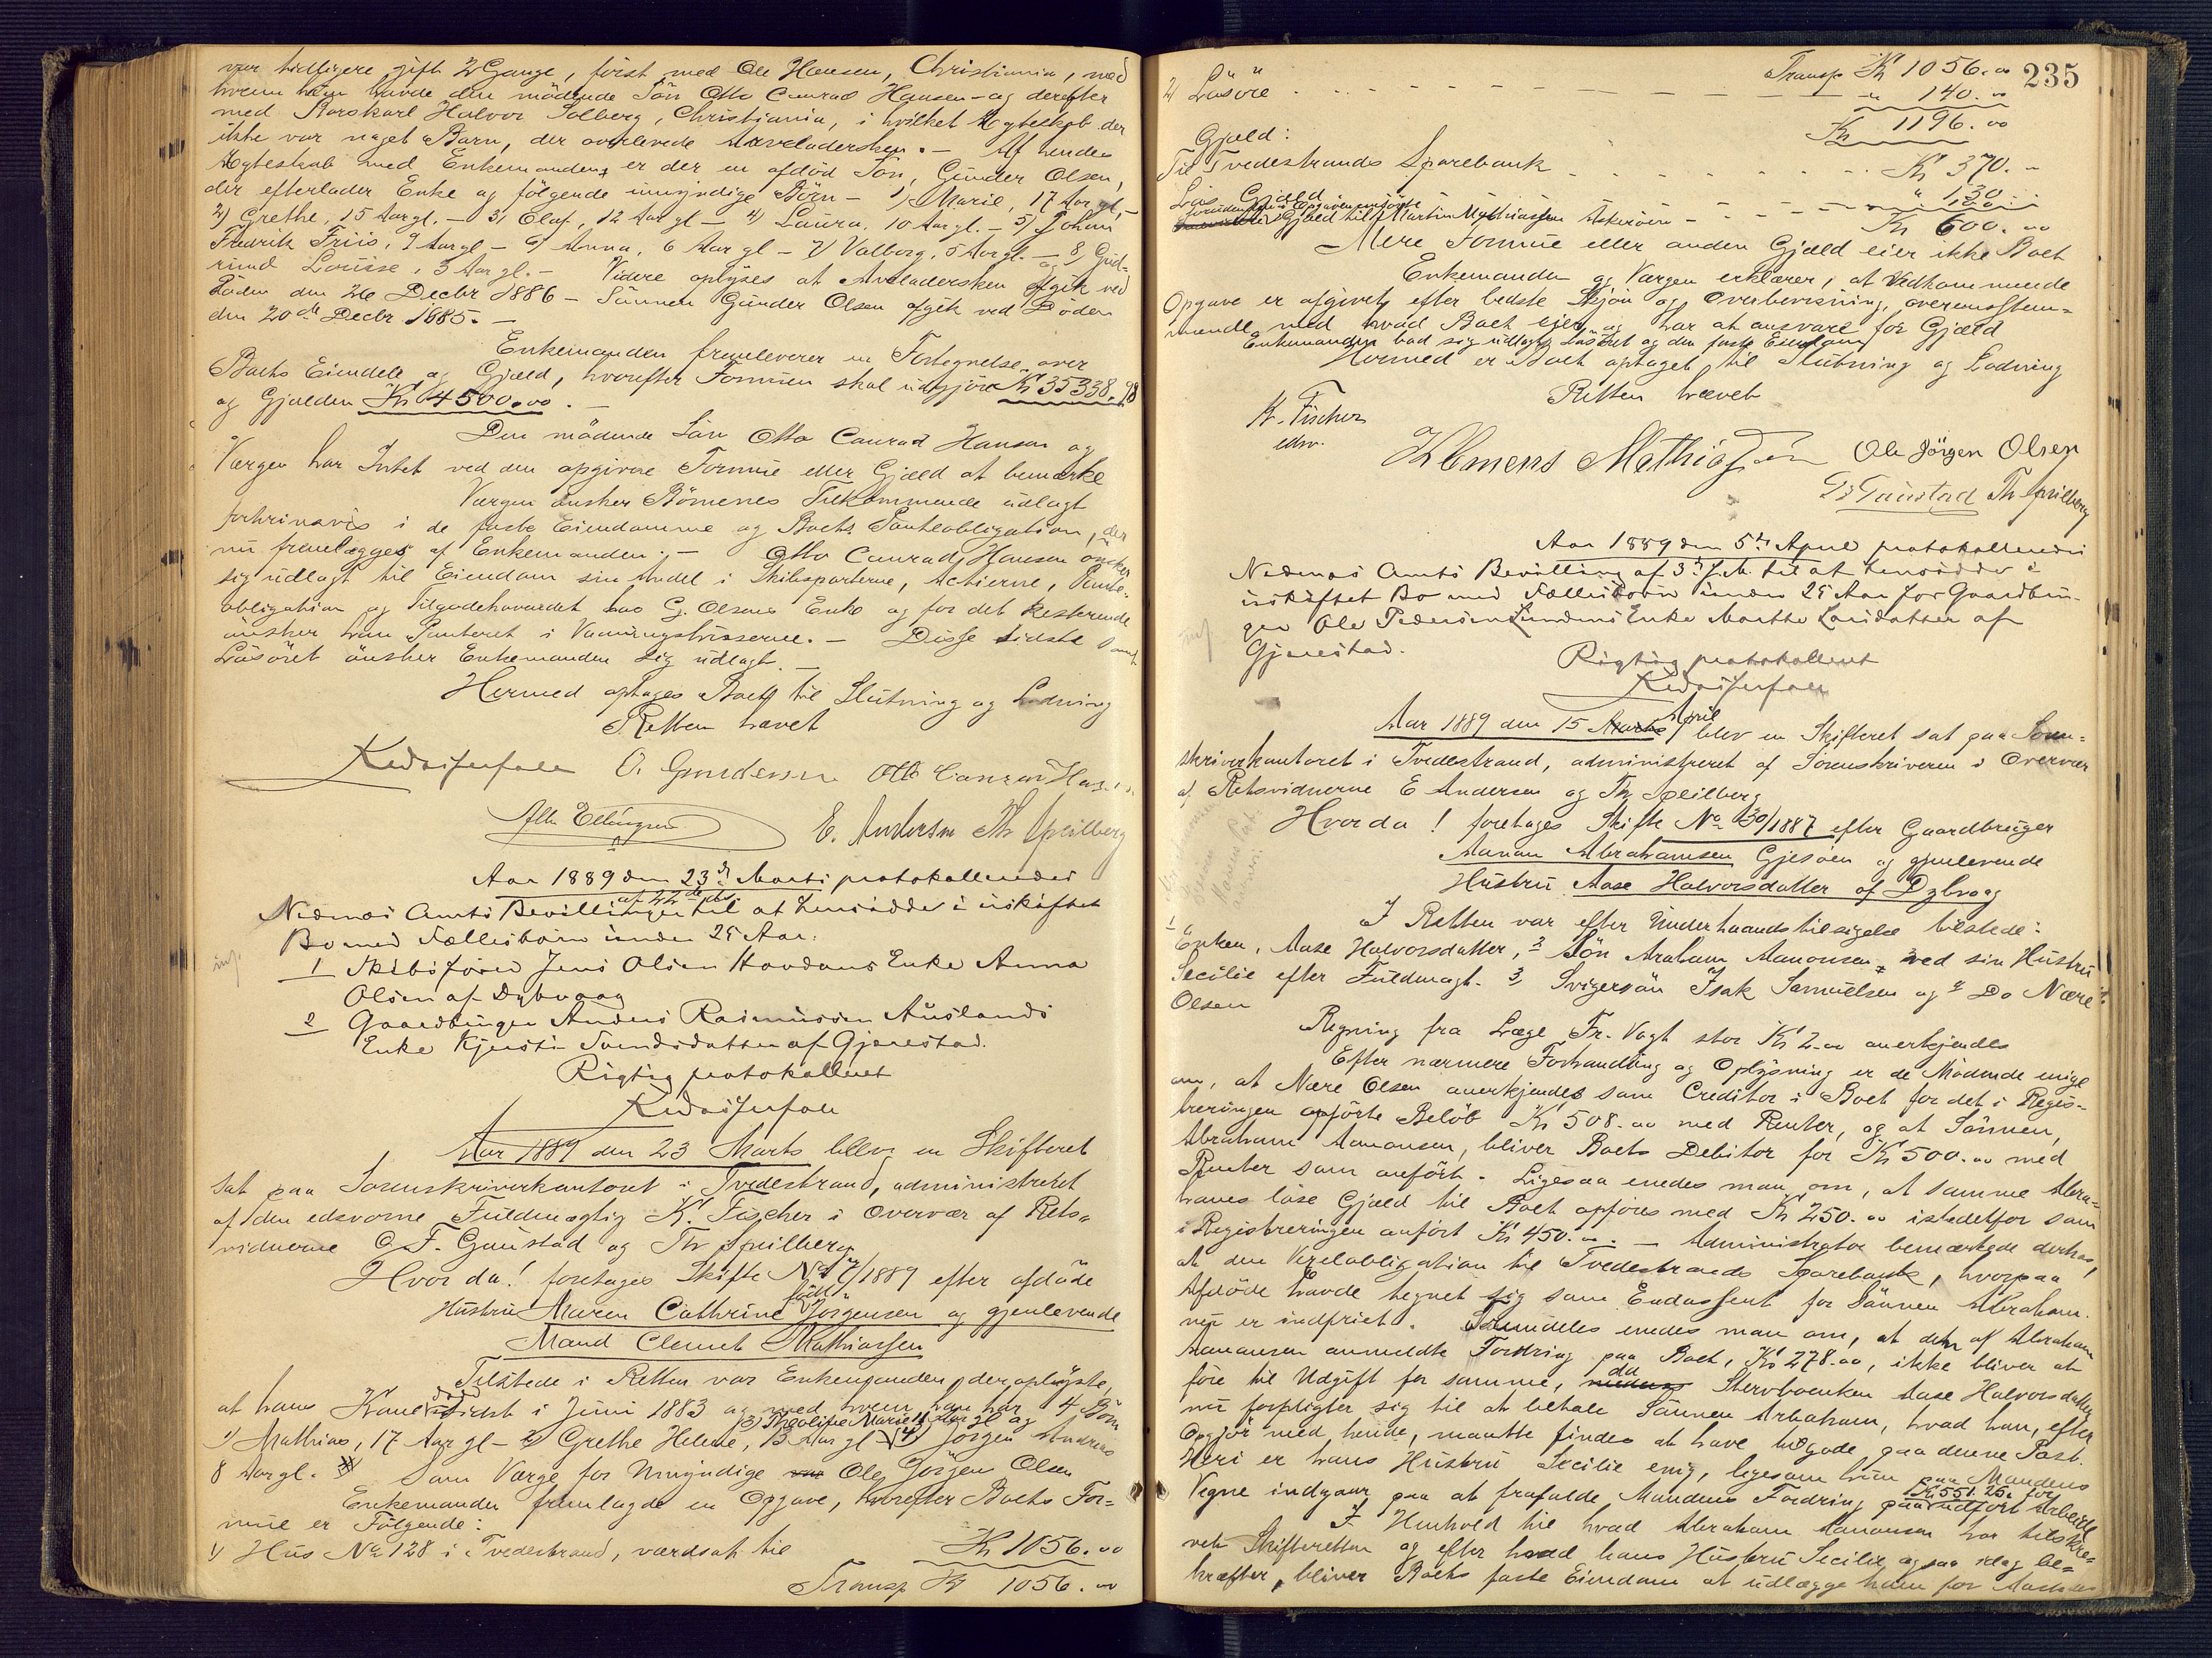 var tidligere gift 2 Gange, först med Ole Hansen, Christiania, med
hvem hun havde den mödende Sön Otto Cunrad Hansen – og derefter
med Karl Halvor Solberg, Christiania, i hvilket Ægteskab der
ikke var noget Barn, der overlevede Arveladersken. – Af hendes
Ægteskab med Enkemanden, er der en afdöd Sön, Gunder Olsen,
der efterlader Enke og fölgende umyndige Börn – 1) Marie, 17 Aar gl,
2) Grethe, 15 Aar gl. – 3) Oluf, 12 Aar gl – 4) Laura, 10 Aar gl. – 5) Johan
Fredrik Friis, 9 Aar gl – 6) Anna, 6 Aar gl – 7) Valborg, 5 Aar gl. – og 8) Gud-
rund Louise, 3 Aar gl. – Videre oplyses at Arveladersken afgik ved
Döden den 26 Decbr 1886 – Sönnen Gunder Olsen afgik ved Döden
den 20de Decbr 1885. –
Enkemanden fremleverer en Fortegnelse over
Boets Eiendele og Gjæld, hvorefter Formuen skal udgjöre Kr 35338.98
og Gjælden Kr 4500.00. –
Den mödende Sön Otto Conrad Hansen og
Værgen har Intet ved den opgivne Formue eller Gjæld at bemærke
Værgen önsker Börnenes Tilkommende udlagt
fortrinsvis i de faste Eiendomme og Boets Panteobligation, der
nu fremlægges af Enkemanden. – Otto Cunrad Hansen önsker
sig udlagt til Eiendom sin Andel i Skibsparterne, Actierne, Pante-
obligation og Tilgodehavendet hos G. Olsens Enke og for det Resterende
önsker han Panteret i Vaaningshusserne. – Disse sidste samt
Lösöret önsker Enkemanden sig udlagt. –
Hermed optages Boet til Slutning og Lodning
Retten hævet
O. Gundersen Otto Conrad Hansen
E. Andersen Th Speilberg
Aar 1889 den 23d Marts protokolleredes
af 22de ds
Nedenæs Amts Bevillinger til at hensidde i uskiftet
Bo med Fællesbörn under 25 Aar:
1 Skibsförer Jens Olsen Hovdans Enke Anna
Olsen af Dybvaag
2 Gaardbruger Anders Rasmussen Auslands
Enke Kjersti Svendsdatter af Gjerestad.
Rigtig protokolleret
Aar 1889 den 23 Marts blev en Skifteret
sat paa Sorenskriverkontoret i Tvedestrand, administreret
af den edsvorne Fuldmægtig K. Fischer i Overvær af Rets-
vidnerne O. F. Gaustad og Th Speilberg
Hvor da! foretages Skifte No 7/1889 efter afdöde
Hustru Maren Cathrine född Jörgensen og gjenlevende
Mand Clemet Mathiassen
Tilstede i Retten var Enkemanden, der oplyste,
at hans Kone döde sidst i Juni 1883 og med hvem han har 4 Börn
3) Theoline Marie 11 Aar gl og
1) Mathias, 17 Aar gl – 2) Grethe Helene, 13 Aar gl – 4) Jörgen Andreas
8 Aar gl. Som Værge for Umyndige Ole Jörgen Olsen
Enkemanden fremlagde en Opgave, hvorefter Boets For-
mue er Fölgende:
1) Hus No 128 i Tvedestrand, værdsat til Kr 1056.00
Transp Kr 1056.00
235
Transp Kr 1056.00
2) Lösöre - - - - - - 140.00
Kr 1196.00
Gjæld:
Til Tvedestrands Sparebank - - - - - Kr 370. -
Lös Gjæld - - - - " 130
foruden den i Opgaven anförte
Gjæld til Martin Mathiassen Askeröen - - - " 100
Kr 600.00
Mere Formue eller anden Gjæld eier ikke Boet
Enkemanden og Værgen erklærer, at Vedkommende
Opgave er afgivet efter bedste Skjön og Overbevisning, overensstem-
mende med hvad Boet ejer og har at ansvare for Gjæld
Enkemanden bad sig udlagt Lösöret og den faste Eiendom
Hermed er Boet optaget til Slutning og Lodning
Retten hævet
K. Fischer
edsv.
Klemens Mathiassen Ole Jörgen Olsen
Gaustad Th Speilberg
Aar 1889 den 5te April protokolleredes
Nedenæs Amts Bevilling af 3d d. M. til at hensidde i
uskiftet Bo med Fællesbörn under 25 Aar for Gaardbru-
ger Ole Pedersen Lundens Enke Marthe Larsdatter af
Gjerestad.
Rigtig protokolleret
Aar 1889 den 15 April blev en Skifteret sat paa Soren-
skriverkontoret i Tvedestrand, administreret af Sorenskriveren i Overvær
af Retsvidnerne E Andersen og Th Speilberg
Hvor da! foretages Skifte No 30/1887 efter Gaardbruger
Aanon Abrahamsen Gjesöen og gjenlevende
Hustru Aase Halvorsdatter af Dybvaag
I Retten var efter Underhaandstilsigelse tilstede:
1 Enken, Aase Halvorsdatter, 2 Sön Abraham Aanonsen, ved sin Hustru
Secilie efter Fuldmagt. 3, Svigersön Isak Samuelsen og 4 Do Nære
Olsen
Regning fra Læge Fr. Vogt stor Kr 2.00 anerkjendes
Efter nærmere Forhandling og Oplysning er de Mödende enige
om, at Nære Olsen anerkjendes som Creditor i Boet for det i Regis-
treringen opförte Belöb Kr 508.00 med Renter, og at Sönnen,
Abraham Aanonsen, bliver Boets Debitor for Kr 500.00 med
Renter som anfört. Ligesaa enedes man om, at samme Abra-
hams löse Gjæld til Boet opföres med Kr 250.00 istedetfor som
i Registreringen anfört Kr 450.00. – Administrator bemærkede derhos,
at den Vexelobligation til Tvedestrands Sparebank, hvorpaa
Afdöde havde tegnet sig som Endossent for Sönnen Abraham,
nu er indfriet. Saaledes enedes man om, at den af Abraham
Aanonsen anmeldte Fordring paa Boet, Kr 278.00, ikke bliver at
före til Udgift for samme, da Stervboenken Aase Halvorsdatter
nu forpligter sig til at betale Sönnen Abraham, hvad han, efter
Opgjör med hende, maatte findes at have tilgode paa denne Post.
Heri er hans Hustru Secilie enig, ligesom hun paa Mandens
Vegne indgaar paa at frafalde Mandens Fordring Kr 551.25 for udfört Arbeide
I Henhold til hvad Abraham Aanonsen har tilskre-
vet Skifteretten og efter hvad hans Hustru Secilie ogsaa idag be-
kræfter, bliver Boets faste Eiendom at udlægge ham for